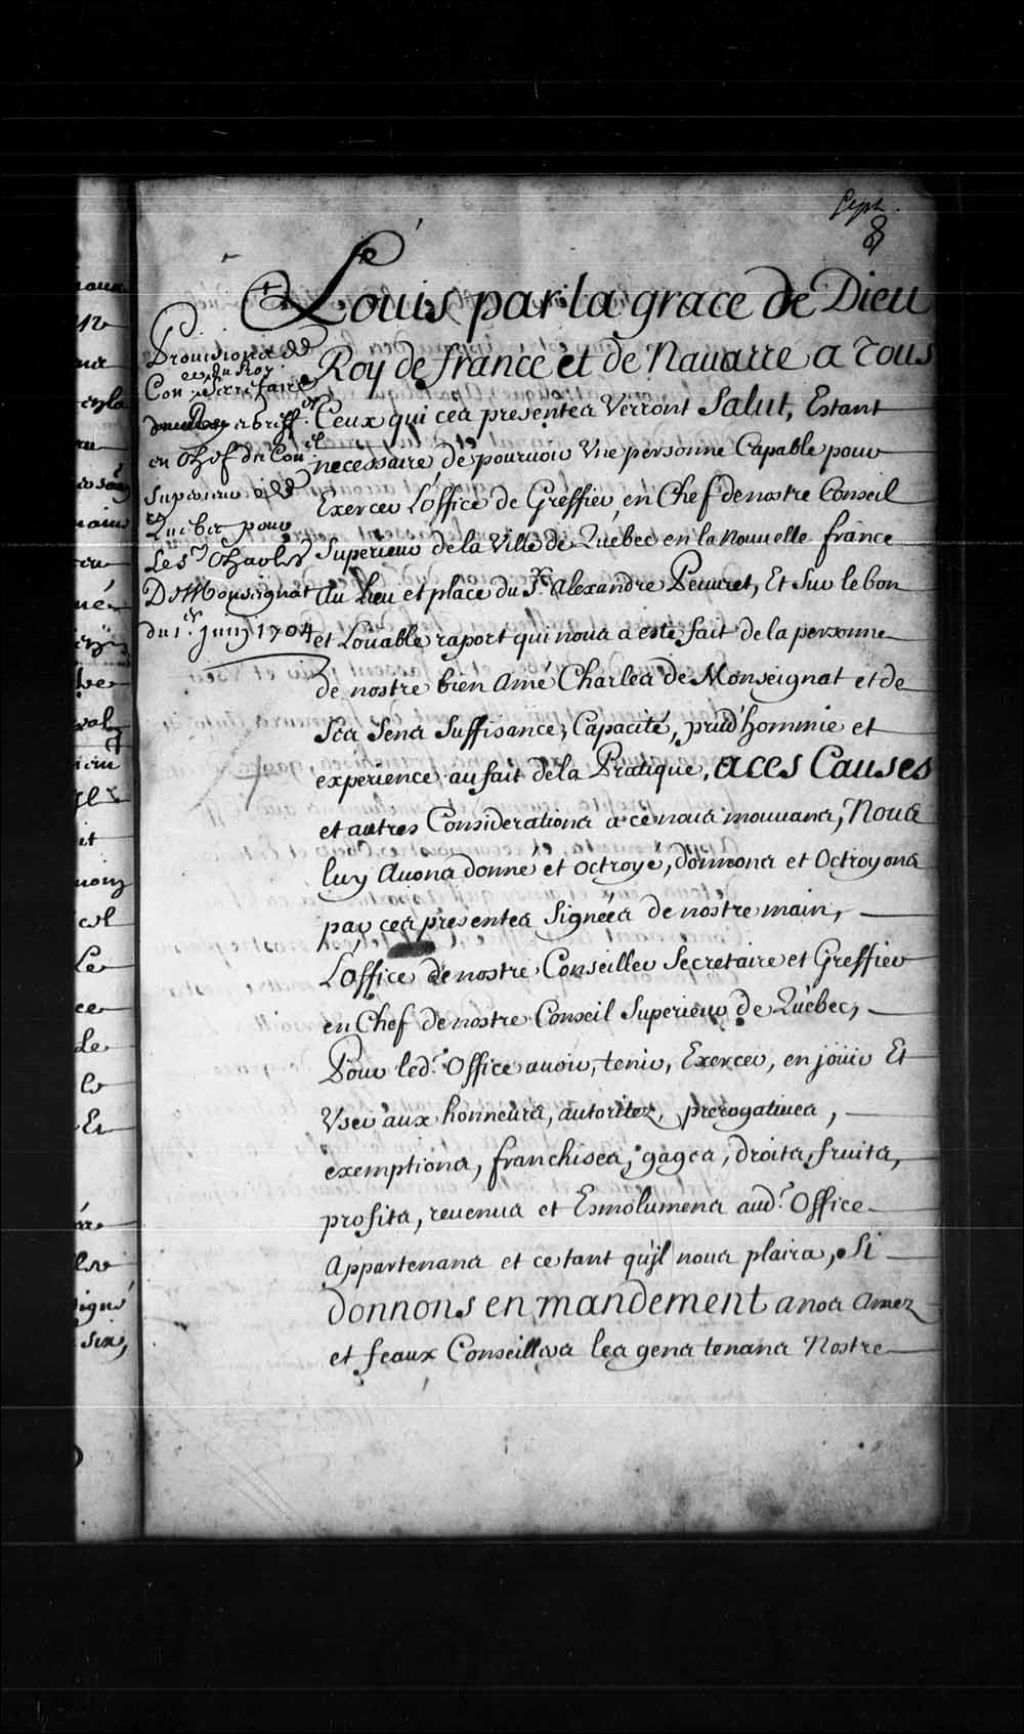 Sept.
8
Louis par la grace de Dieu
Roy de france et de Navarre a tous
Ceux qui ces presentes Verront Salut, Estant
necessaire de pourvoir Vne personne Capable pour
Exercer L'office de Greffier, en Chef de nostre Conseil
Superieur de la Ville de Quebec en la Nouuelle france
Au lieu et place du Sr. Alexandre Peuuret, Et sur le bon
et Loüable raport qui nous a esté fait de la personne
de nostre bien Amé Charles de Monseignat et de
Ses Sens Suffisance, Capacité, prud'hommie et
experience au fait de la Pratique, A ces Causes
et autres Considerations a ce nous mouuans, Nous
luy Auons donne et octroye, donnons et Octroyons
par ces presentes Signées de nostre main,
L'office de nostre Conseiller Secretaire et Greffier
en Chef de nostre Conseil Superieur de Québec,
Pour led. Office auoir, tenir, Exercer, en joüir Et
Vser aux honneurs, autoritez, prerogatiues,
exemptions, franchises, gages, droits, fruits,
profits, reuenus et Esmolumens aud. Office
Appartenans et ce tant qu'jl nous plaira, Si
donnons en mandement a nos Amez
et feaux Conseillers les gens tenans Nostre
Prouisions de
Con.er du Roy
Secretaire
et Greff.er
en Chef du Con.el
Superieur de
Quebec pour
Le Sr. Charles
De Monseignat
du 1.er juin 1704